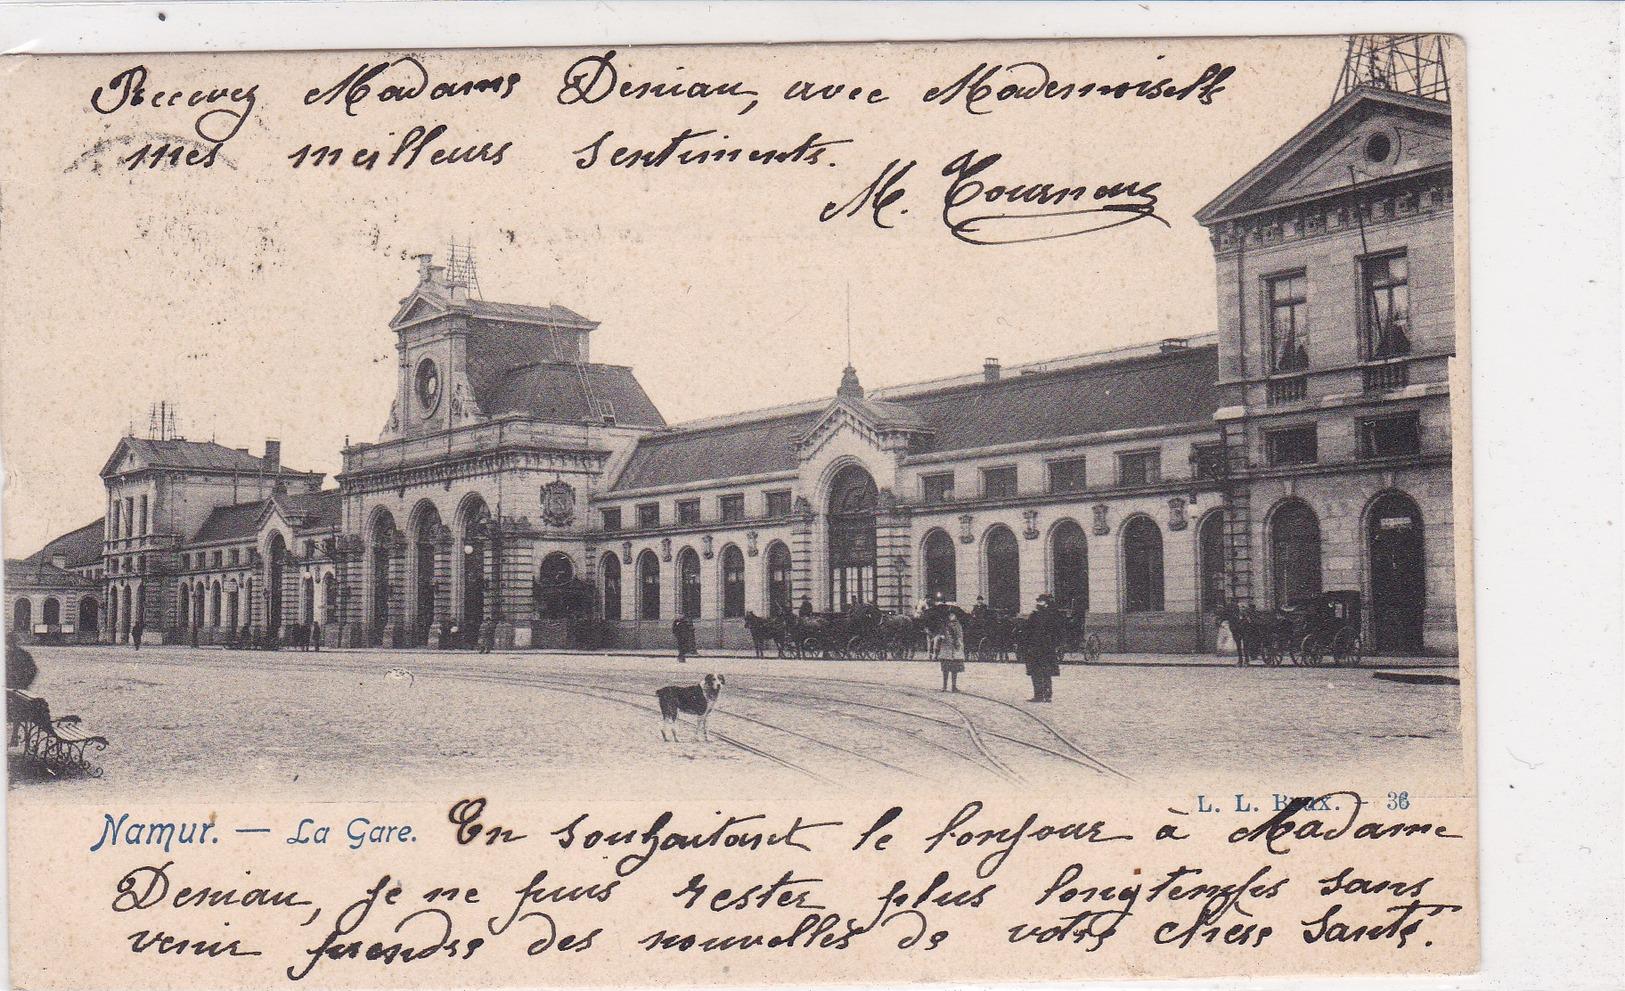 Recevez Madame Deniau, avec Mademoiselle
mes meilleurs sentiments.
M. Tournay
L. L. Brux. - 36
Namur. — La Gare.
En souhaitant le bonjour à Madame
Deniau, je ne puis rester plus longtemps sans
venir prendre des nouvelles de votre chère santé.